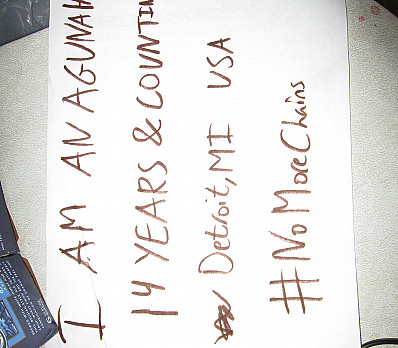 I AM AN AGUNAH
14 YEARS & COUNTIN
Detroit, MI USA
#NoMoreChains